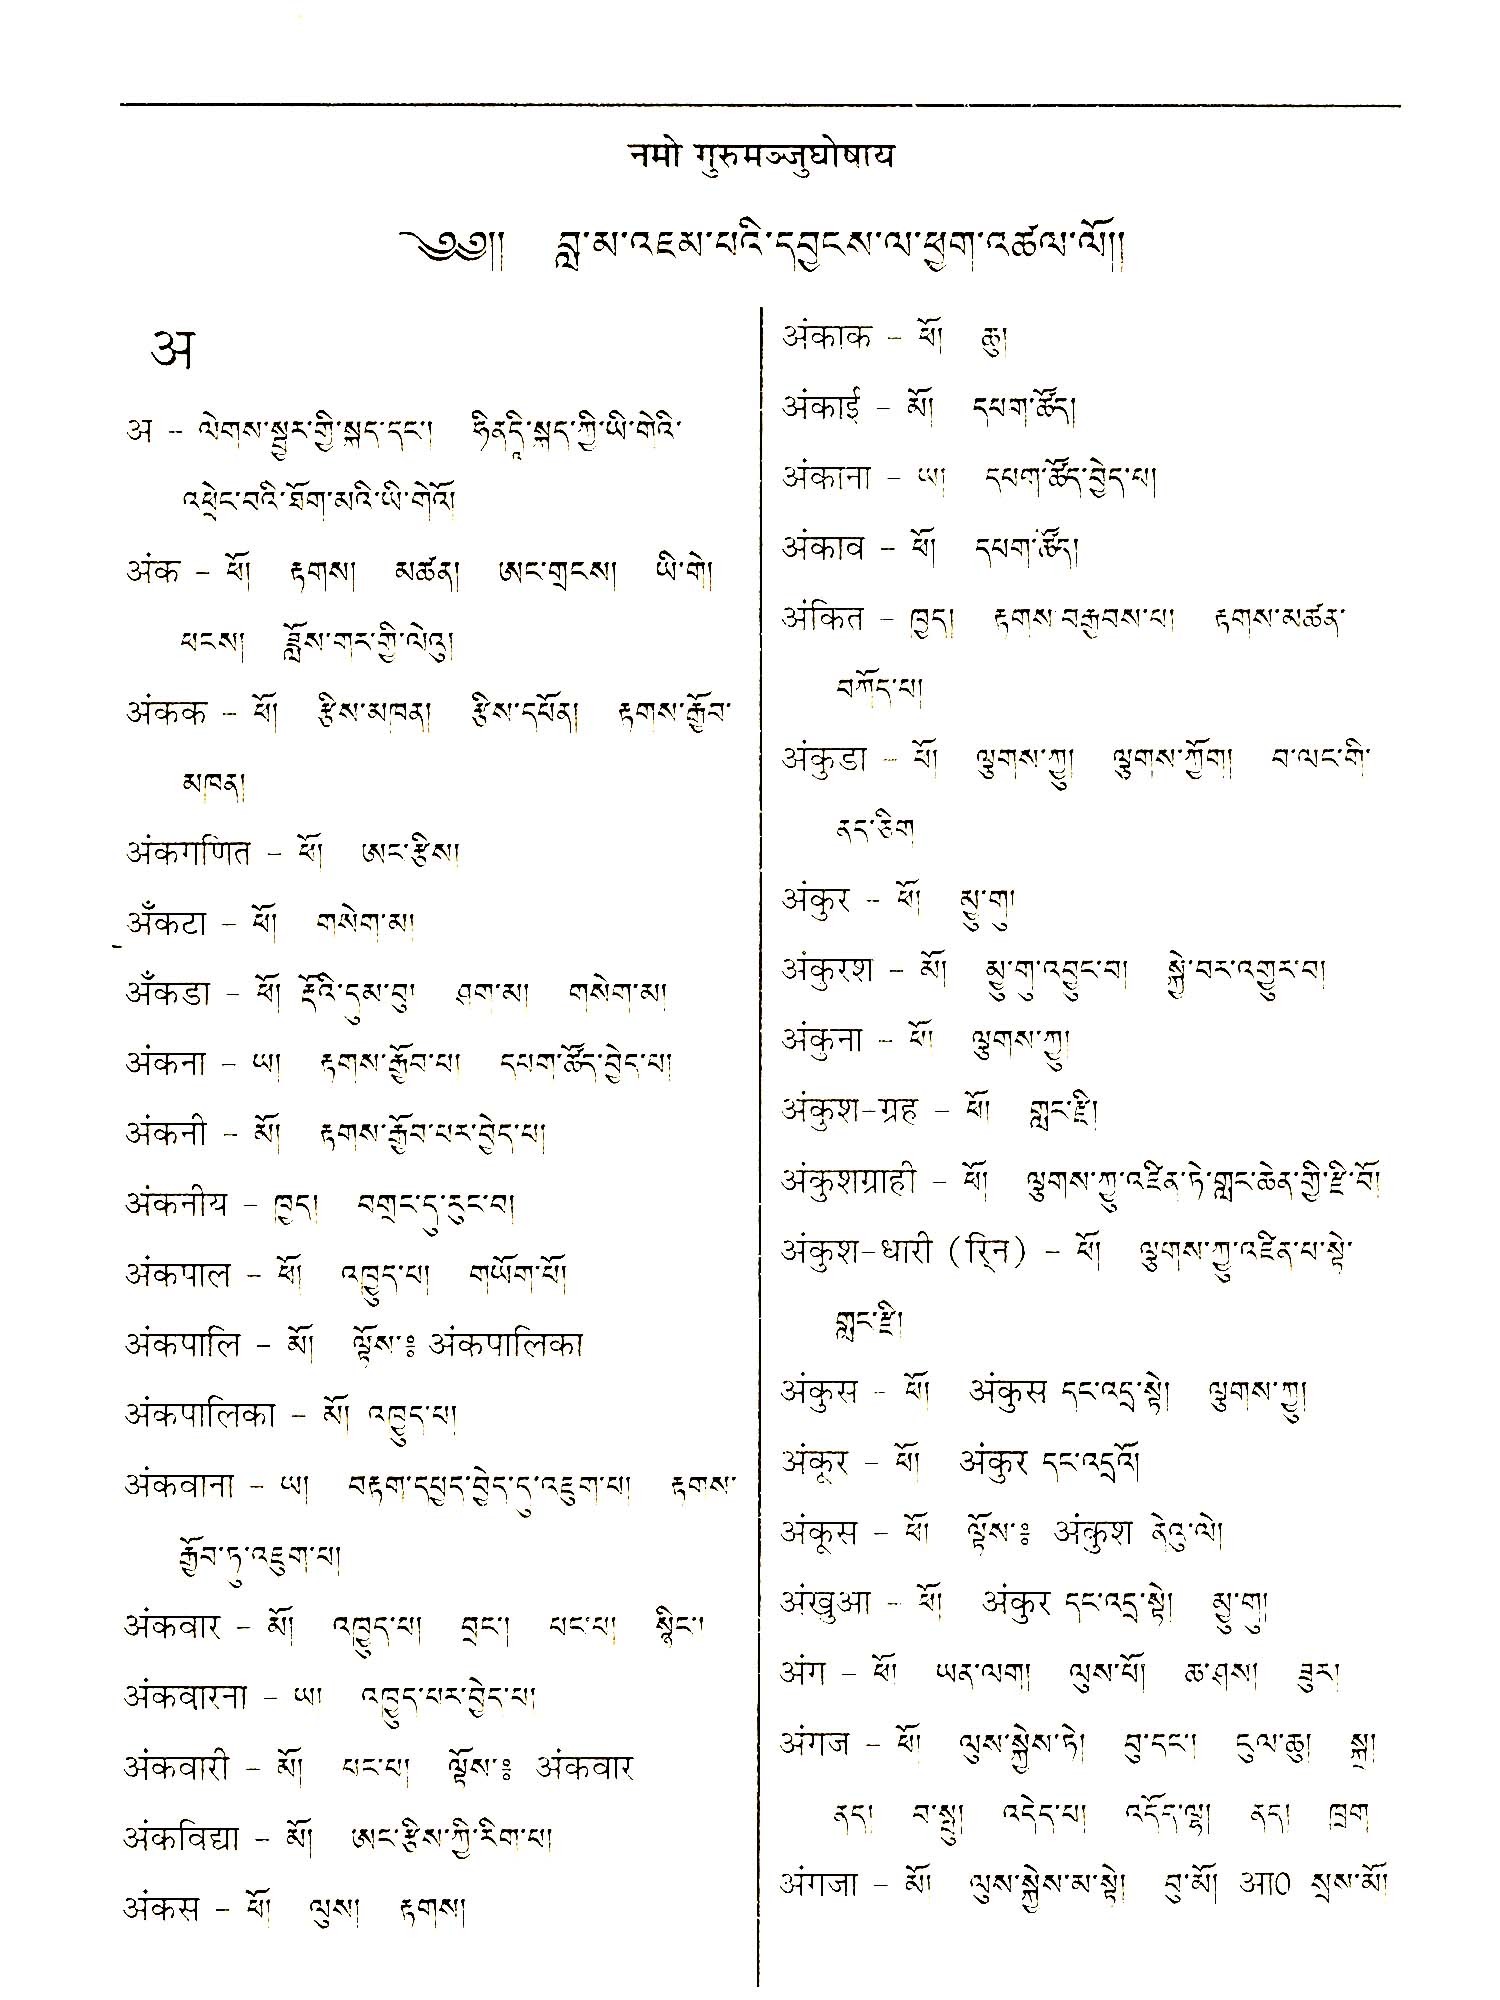 नमो गुरुमञ्जुघोषाय
༄༅།། བླ་མ་འཇམ་པའི་དབྱངས་ལ་ཕྱག་འཚལ་ལོ།།
अ
अ - ལེགས་སྦྱར་གྱི་སྐད་དང་། ཧིནདཱི་སྐད་ཀྱི་ཡི་གེའི་
འཕྲེང་བའི་ཐོག་མའི་ཡི་གེའོ།
अंक - ཕོ། རྟགས། མཚན། ཨང་གྲངས། ཡི་གེ།
པངས། ཟློས་གར་གྱི་ལེའུ།
अंकक - ཕོ། རྩིས་མཁན། རྩིས་དཔོན། རྟགས་རྒྱོབ་
མཁན།
अंकगणित - ཕོ། ཨང་རྩིས།
अँकटा - ཕོ། གསེག་མ།
अँकडा - ཕོ། རྡོའི་དུམ་བུ། ཤག་མ། གསེག་མ།
अंकना - ཡ། རྟགས་རྒྱོབ་པ། དཔག་ཚོད་བྱེད་པ།
अंकनी - མོ། རྟགས་རྒྱོབ་པར་བྱེད་པ།
अंकनीय - ཁྱད། བགྲང་དུ་རུང་བ།
अंकपाल - ཕོ། འཁྱུད་པ། གཡོག་པོ།
अंकपालि - མོ། ལྟོས་༔ अंकपालिका
अंकपालिका - མོ། འཁྱུད་པ།
अंकवाना - ཡ། བརྟག་དཔྱད་བྱེད་དུ་འཇུག་པ། རྟགས་
རྒྱོབ་ཏུ་འཇུག་པ།
अंकवार - མོ། འཁྱུད་པ། བྲང་། པང་པ། སྙིང་།
अंकवारना - ཡ། འཁྱུད་པར་བྱེད་པ།
अंकवारी - མོ། པང་པ། ལྟོས་༔ अंकवार
अंकविद्या - མོ། ཨང་རྩིས་ཀྱི་རིག་པ།
अंकस - ཕོ། ལུས། རྟགས།
अंकाक - ཕོ། ཆུ།
अंकाई - མོ། དཔག་ཚོད།
अंकाना - ཡ། དཔག་ཚོད་བྱེད་པ།
अंकाव - ཕོ། དཔག་ཚོད།
अंकित - ཁྱད། རྟགས་བརྒྱབས་པ། རྟགས་མཚན་
བཀོད་པ།
अंकुडा - ཕོ། ལྕགས་ཀྱུ། ལྕགས་ཀྱོག། བ་ལང་གི་
ནད་ཅིག
अंकुर - ཕོ། མྱུ་གུ།
अंकुरश - མོ། མྱུ་གུ་འབྱུང་བ། སྐྱེ་བར་འགྱུར་བ།
अंकुना - ཕོ། ལྕགས་ཀྱུ།
अंकुश-ग्रह - ཕོ། གླང་རྫི།
अंकुशग्राही - ཕོ། ལྕགས་ཀྱུ་འཛིན་ཏེ་གླང་ཆེན་གྱི་རྫི་བོ།
अंकुश-धारी (रि्न) - ཕོ། ལྕགས་ཀྱུ་འཛིན་པ་སྟེ་
གླང་རྫི།
अंकुस - ཕོ། अंकुस དང་འདྲ་སྟེ། ལྕགས་ཀྱུ།
अंकूर - ཕོ། अंकुर དང་འདྲའོ།
अंकूस - ཕོ། ལྟོས་༔ अंकुश ནེའུ་ལེ།
अंखुआ - ཕོ། अंकुर དང་འདྲ་སྟེ། མྱུ་གུ།
अंग - ཕོ། ཡན་ལག། ལུས་པོ། ཆ་ཤས། ཟུར།
अंगज - ཕོ། ལུས་སྐྱེས་ཏེ། བུ་དང་། དུལ་ཆུ། སྐྲ།
ནད། བ་སྤུ། འདེད་པ། འདོད་ལྷ། ནད། ཁྲག
अंगजा - མོ། ལུས་སྐྱེས་མ་སྟེ། བུ་མོ། आ0 སྲས་མོ།